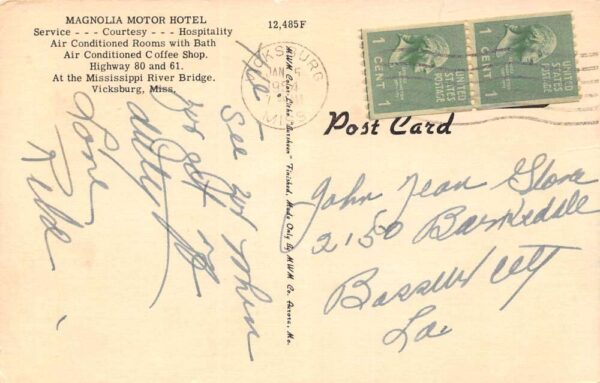 MAGNOLIA MOTOR HOTEL
Service - - - Courtesy - - - Hospitality
Air Conditioned Rooms with Bath
Air Conditioned Coffee Shop.
Highway 80 and 61.
At the Mississippi River Bridge.
Vicksburg, Miss.
12,485F
VICKSBURG
JAN 5
MISS
1 CENT
UNITED
STATES
POSTAGE
1 CENT
UNITED
STATES
POSTAGE
Post Card
MWM Color-Litho "Lurcheen" Finished, Made Only By MWM Co. Aurora, Mo.
See yr when
yr get off
duty
Love
John Jean
2150 Barksdale
Bossier City
La